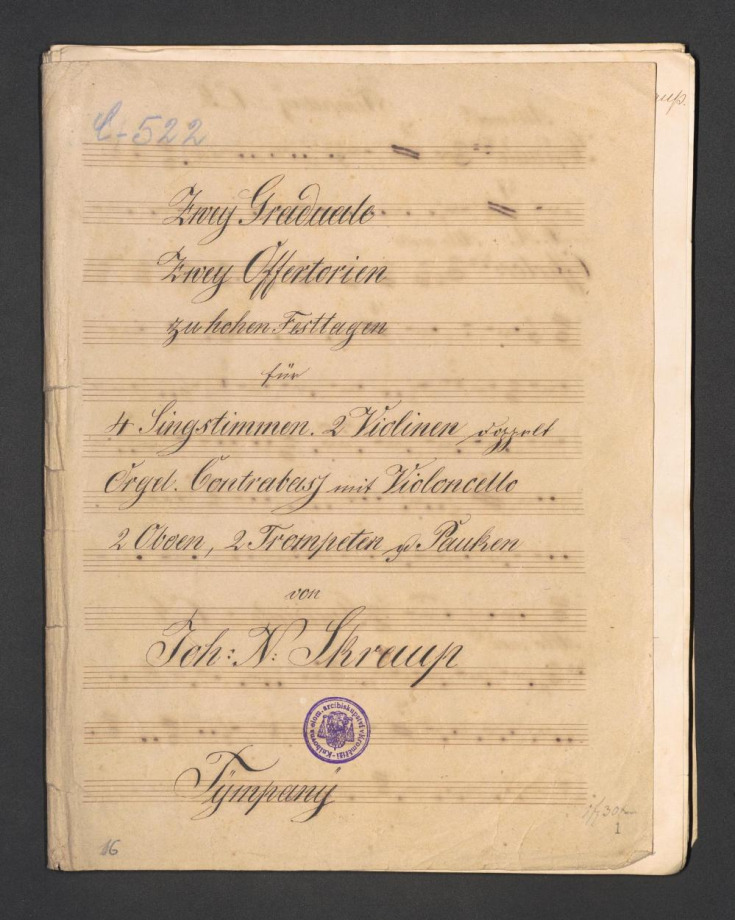 C-522
Zwey Graduale
Zwey Offertorien
zu hohen Festtagen
für
4 Singstimmen. 2 Violinen doppelt
Orgel. Contrabass mit Violoncello
2 Oboen, 2 Trompeten u Pauken
von
Joh: N: Skraup
Knihovna olom. arcibiskupství v Kroměříži
Tÿmpanÿ
1
16